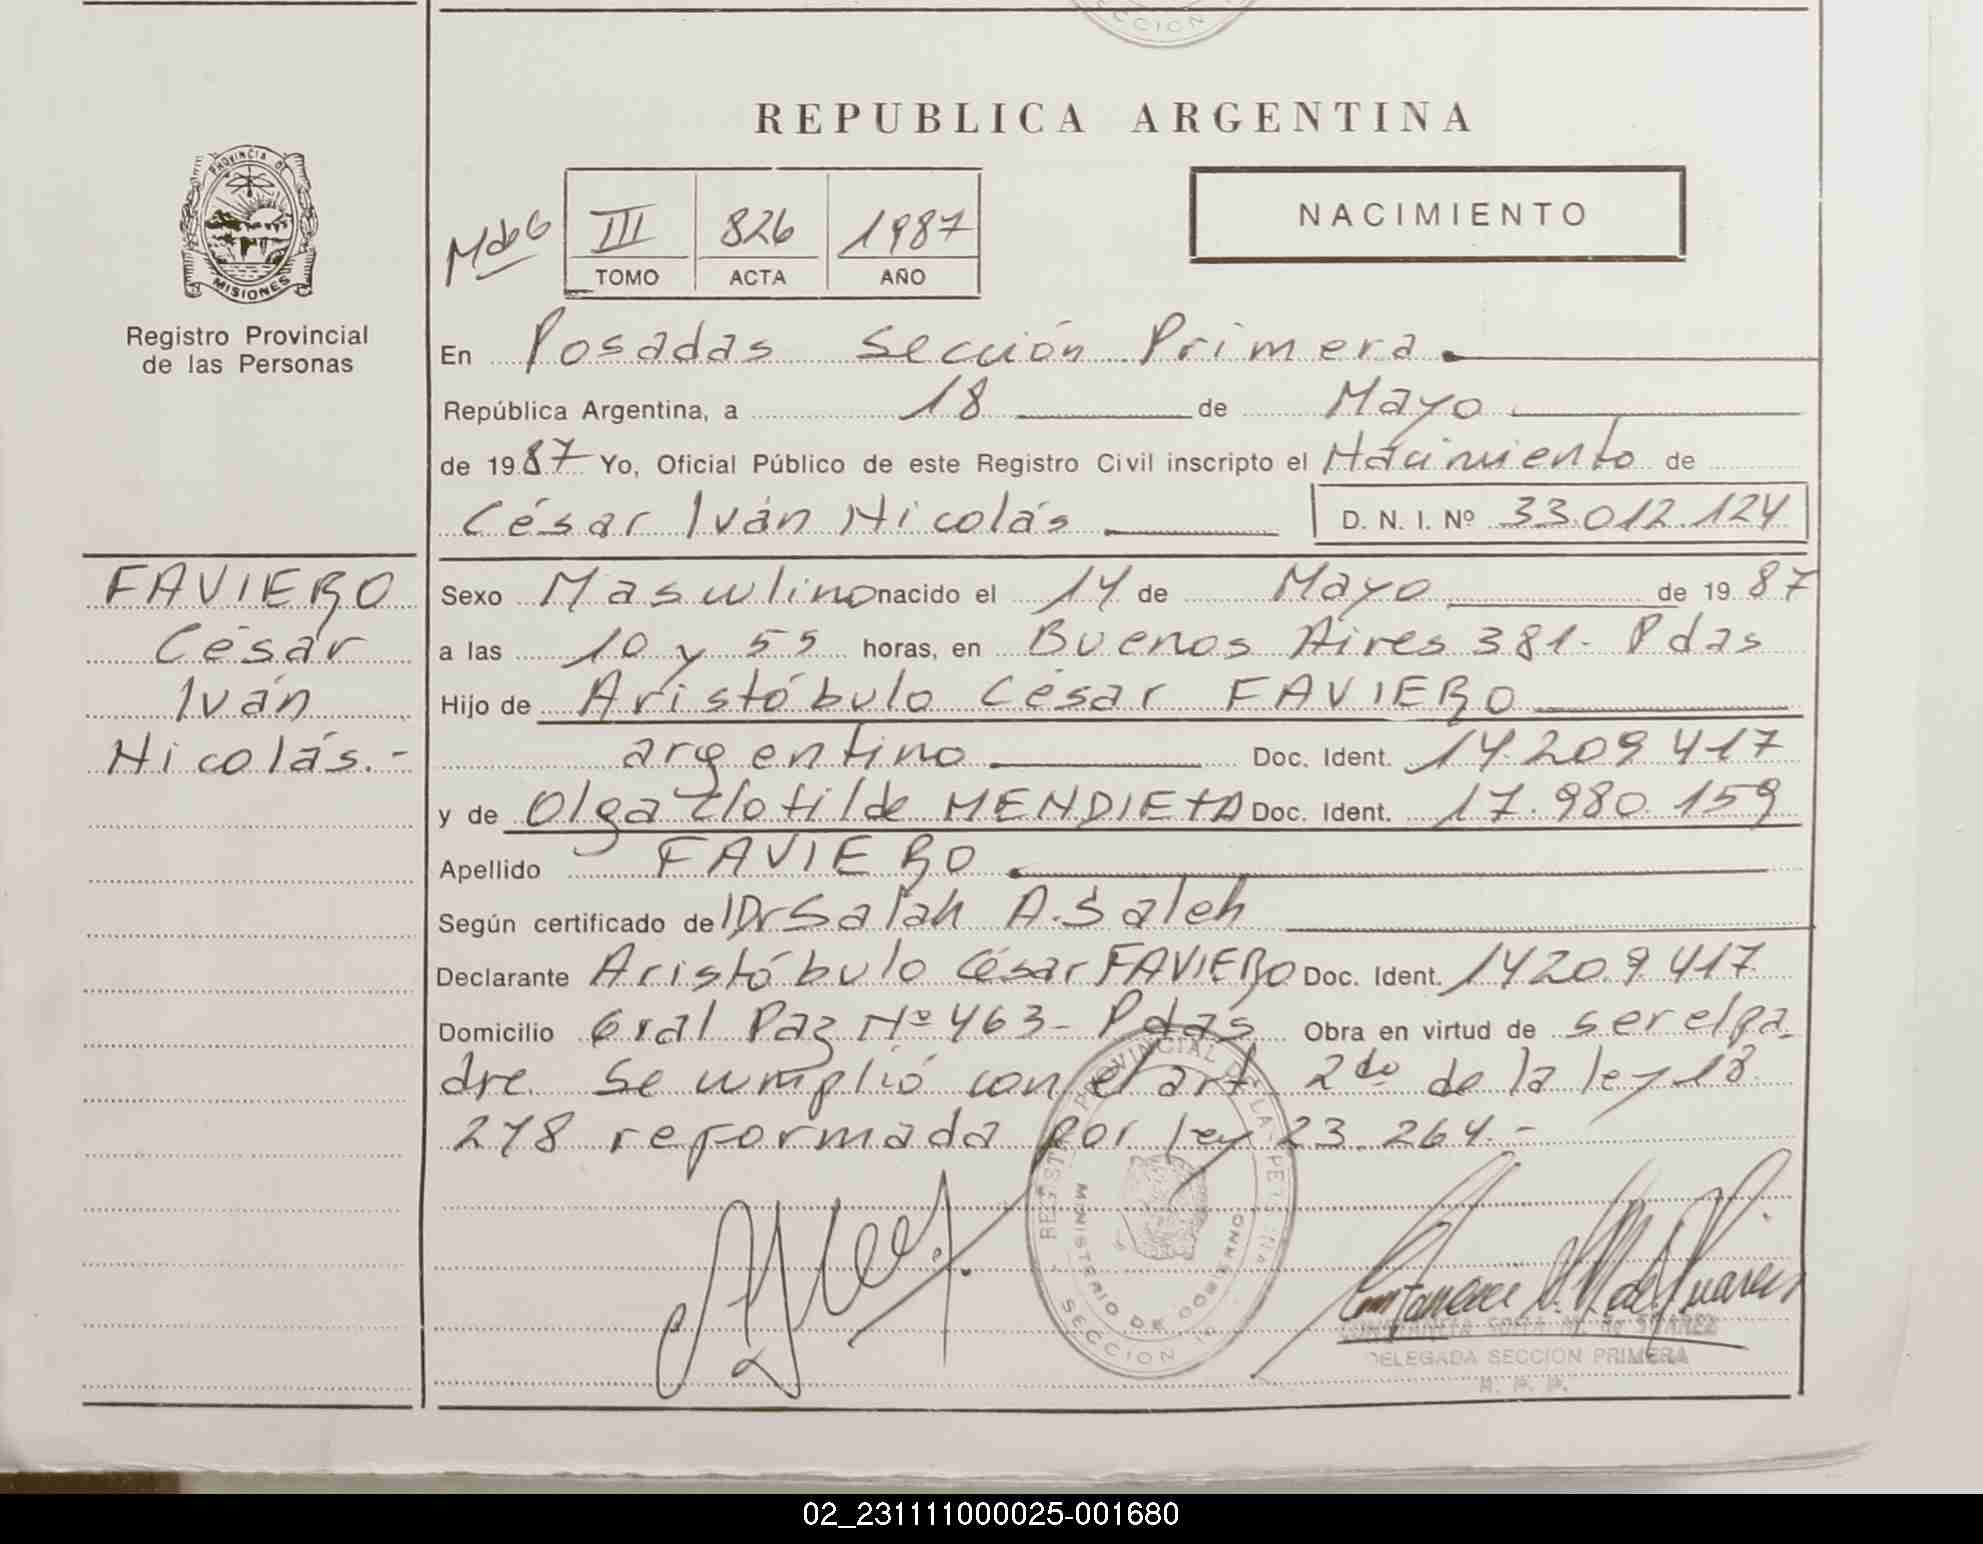 SECCION
REPUBLICA ARGENTINA
PROVINCIA DE
MISIONES
Registro Provincial
de las Personas
MdeG
III 826 1987
TOMO ACTA AÑO
NACIMIENTO
En Posadas Sección Primera.
República Argentina, a 18 de Mayo
de 1987 Yo, Oficial Público de este Registro Civil inscripto el Nacimiento de
César Iván Nicolás D. N. I. Nº 33.012.124
FAVIERO
César
Iván
Nicolás.-
Sexo Masculino nacido el 14 de Mayo de 1987
a las 10 y 55 horas, en Buenos Aires 381- Pdas
Hijo de Aristóbulo César FAVIERO
argentino Doc. Ident. 14.209.417
y de Olga Clotilde MENDIETA Doc. Ident. 17.980.159
Apellido FAVIERO.
Según certificado de Dr Salah A. Saleh
Declarante Aristóbulo César FAVIERO Doc. Ident. 14209417
Domicilio Gral Paz Nº 463- Pdas Obra en virtud de ser el pa-
dre. Se cumplió con el art 2do de la ley 18.
248 reformada por ley 23.264.-
MINISTERIO DE GOBIERNO
SECCION
DELEGADA SECCION PRIMERA
R. P. P.
02_231111000025-001680